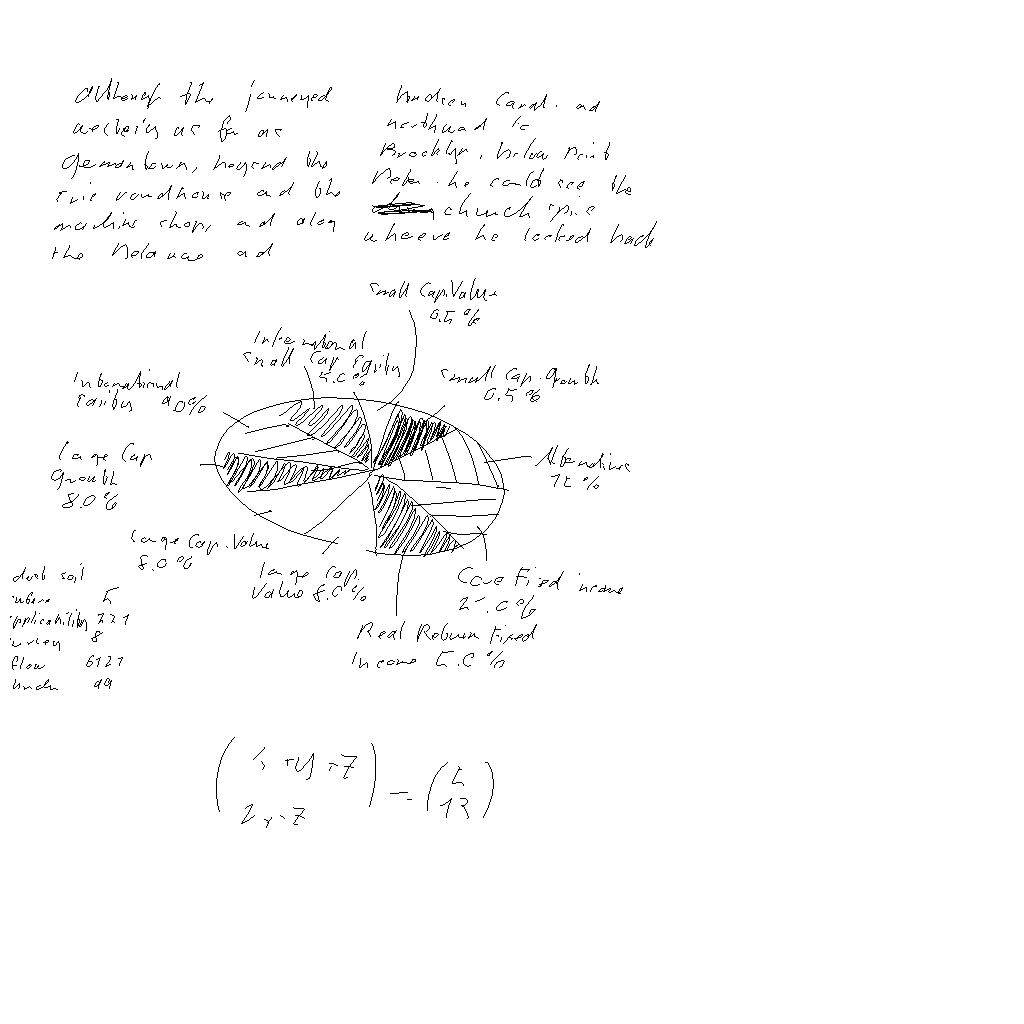 although the journeyed
westerly as far as
Germantown, beyond the
Erie roundhouse and the
machine shop, and along
the Delaware and
Hudson Canal. and
northward to
Brooklyn, below Point
Peter. he could see the
church spire
wherever he looked back
Small Cap. Value
0.5 %
International
Small Cap Equity
5.0 %
Small Cap. Growth
0.5 %
International
Equity 9.0%
Large Cap
Growth
8.0 %
Alternatives
%
Large Cap. Value
8.0 %
Large Cap.
Value 8.0 %
Core Fixed income
25.0 %
Real Return Fixed
Income 5.0 %
soil
5
applicability 221
8
flow 6121
99
+y+z
2x-z
=
5
13